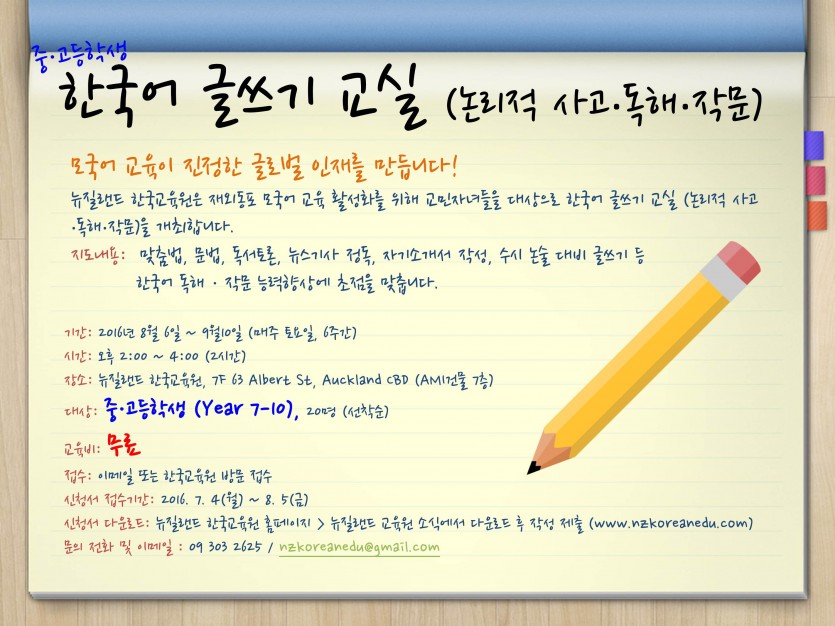 중·고등학생
한국어 글쓰기 교실 (논리적 사고·독해·작문)
모국어 교육이 진정한 글로벌 인재를 만듭니다!
뉴질랜드 한국교육원은 재외동포 모국어 교육 활성화를 위해 교민자녀들을 대상으로 한국어 글쓰기 교실 (논리적 사고
·독해·작문)을 개최합니다.
지도내용: 맞춤법, 문법, 독서토론, 뉴스기사 정독, 자기소개서 작성, 수시 논술 대비 글쓰기 등
한국어 독해 · 작문 능력향상에 초점을 맞춥니다.
기간: 2016년 8월 6일 ~ 9월10일 (매주 토요일, 6주간)
시간: 오후 2:00 ~ 4:00 (2시간)
장소: 뉴질랜드 한국교육원, 7F 63 Albert St, Auckland CBD (AMI건물 7층)
대상: 중·고등학생 (Year 7-10), 20명 (선착순)
교육비: 무료
접수: 이메일 또는 한국교육원 방문 접수
신청서 접수기간: 2016. 7. 4(월) ~ 8. 5(금)
신청서 다운로드: 뉴질랜드 한국교육원 홈페이지 > 뉴질랜드 교육원 소식에서 다운로드 후 작성 제출 (www.nzkoreanedu.com)
문의 전화 및 이메일 : 09 303 2625 / nzkoreanedu@gmail.com